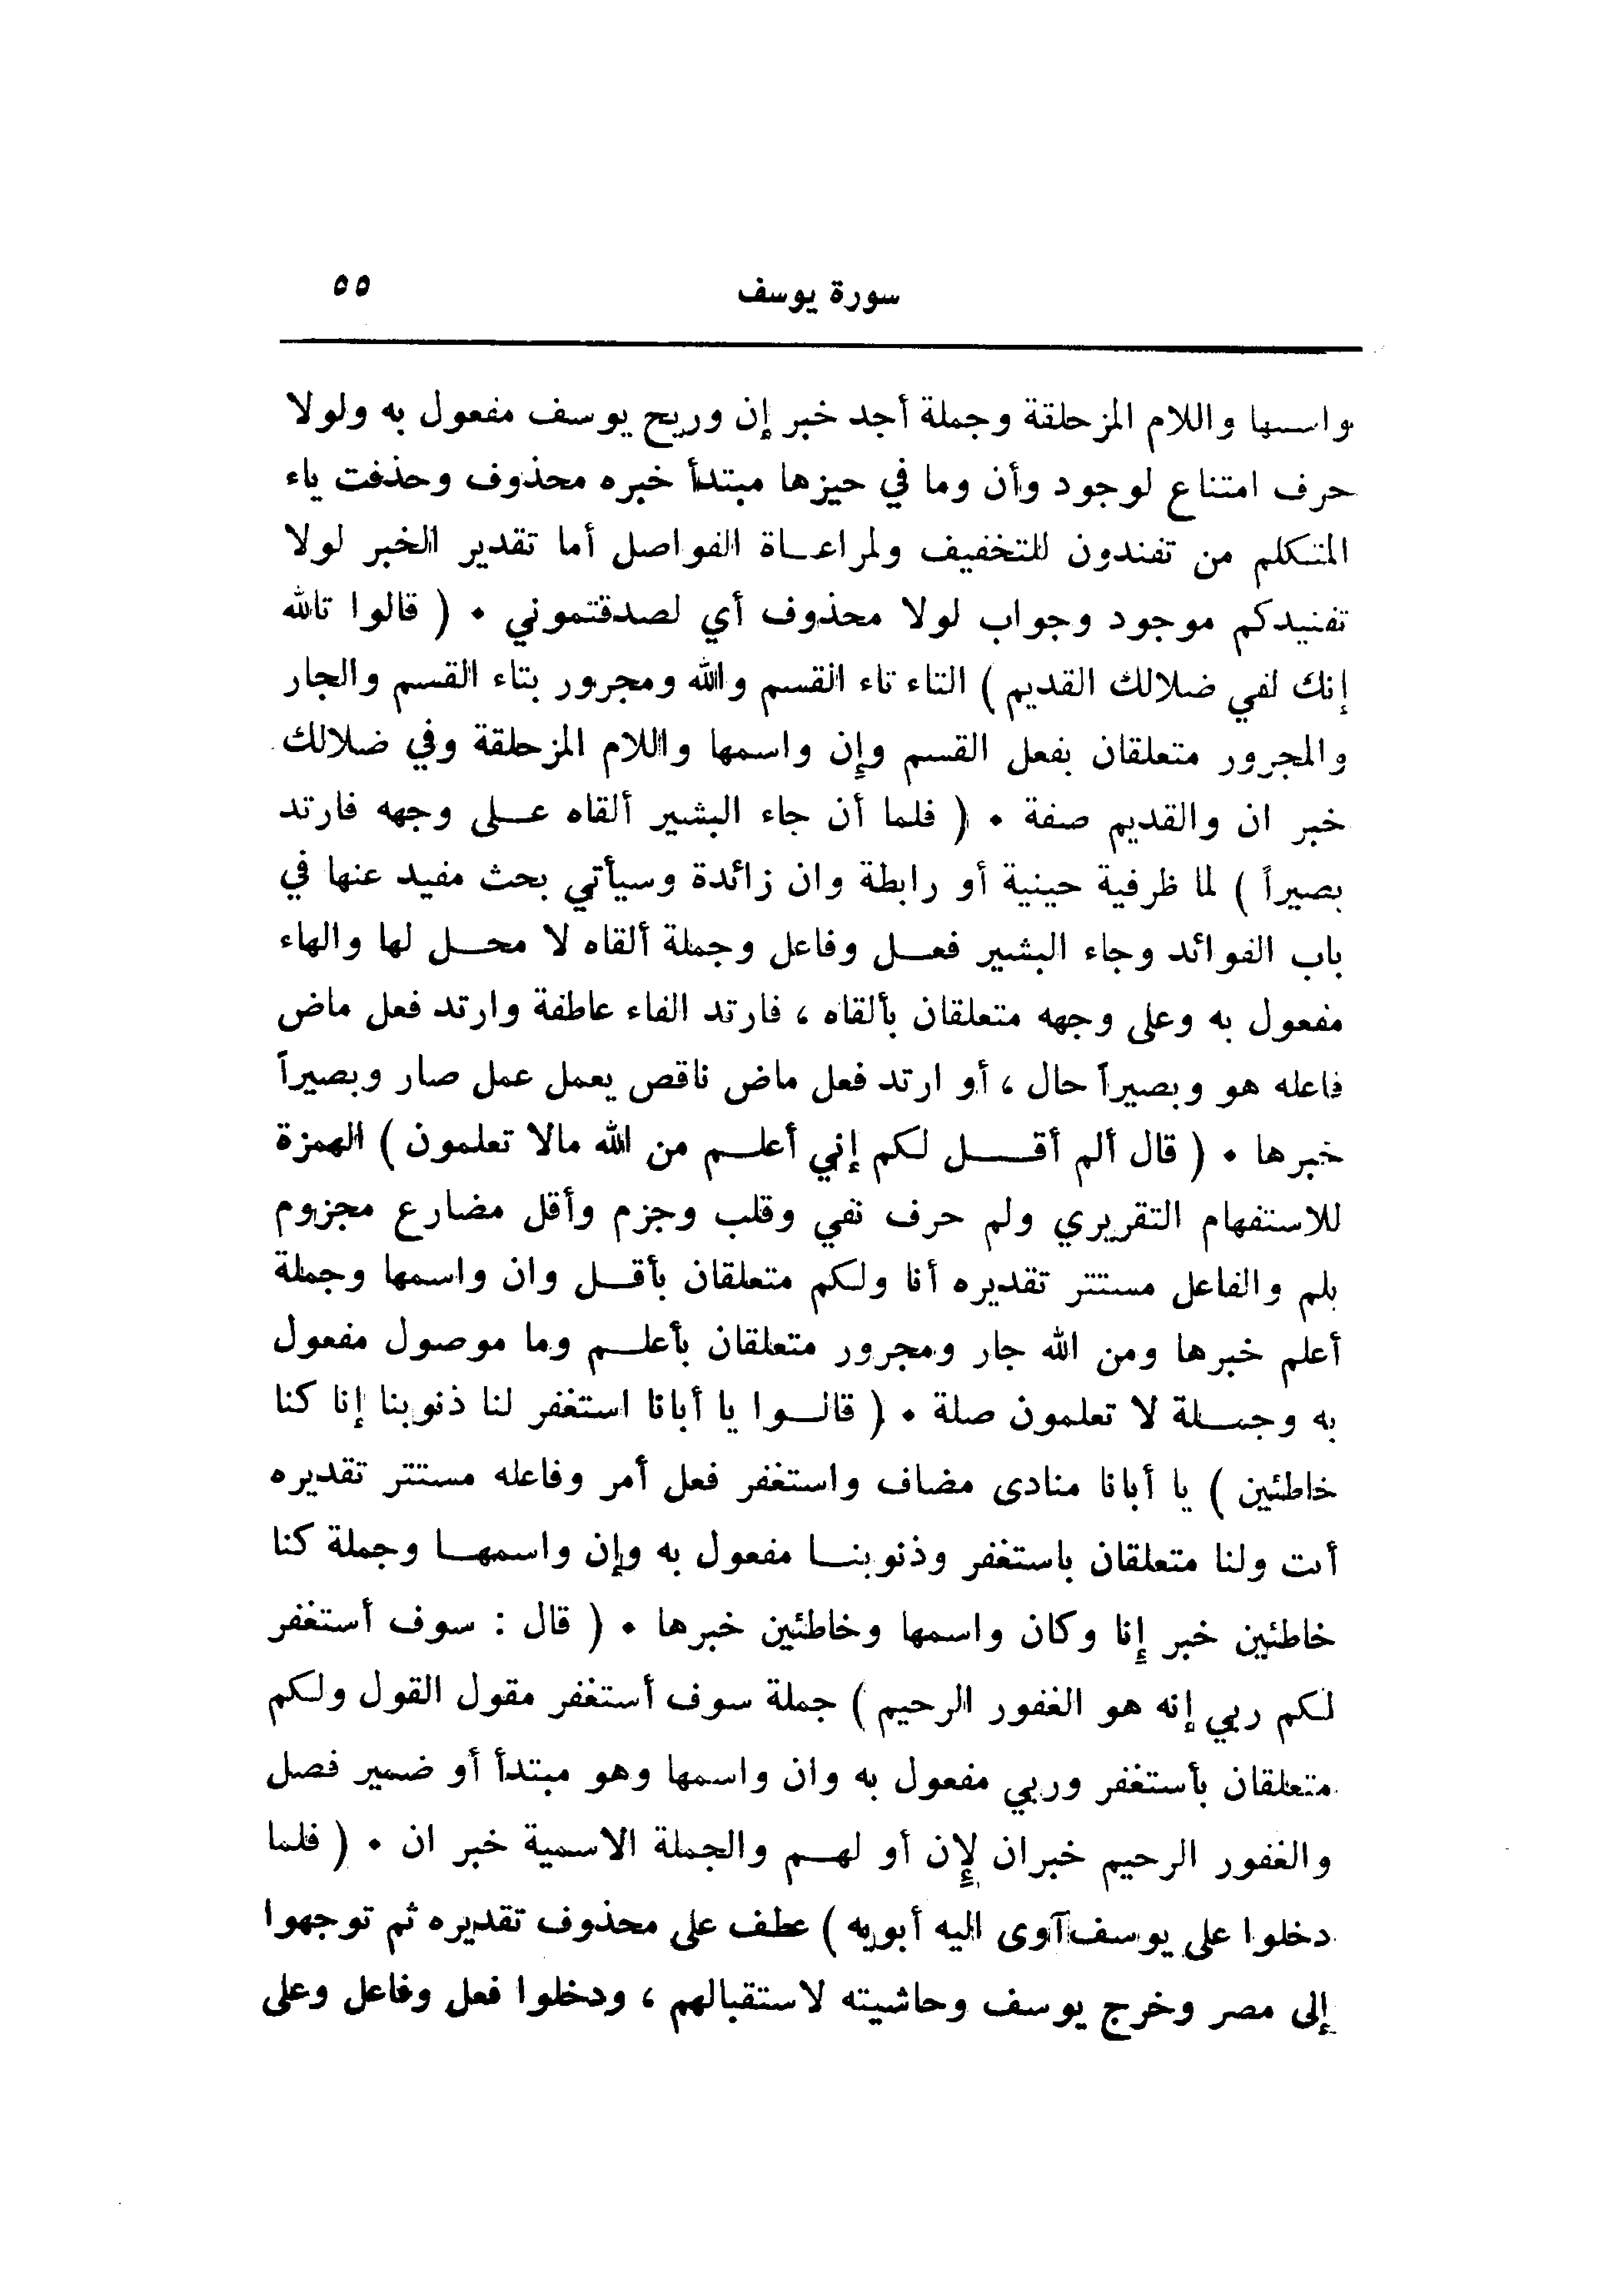 سورة يوسف ٥٥
واسمها واللام المزحلقة وجملة أجد خبر إن وريح يوسف مفعول به ولولا
حرف امتناع لوجود وأن وما في حيزها مبتدأ خبره محذوف وحذفت ياء
المتكلم من تفندون للتخفيف ولمراعاة الفواصل أما تقدير الخبر لولا
تفنيدكم موجود وجواب لولا محذوف أي لصدقتموني ٠ ( قالوا تالله
إنك لفي ضلالك القديم ) التاء تاء القسم والله ومجرور بتاء القسم والجار
والمجرور متعلقان بفعل القسم وإن واسمها واللام المزحلقة وفي ضلالك
خبر ان والقديم صفة ٠ ( فلما أن جاء البشير ألقاه على وجهه فارتد
بصيراً ) لما ظرفية حينية أو رابطة وان زائدة وسيأتي بحث مفيد عنها في
باب الفوائد وجاء البشير فعل وفاعل وجملة ألقاه لا محل لها والهاء
مفعول به وعلى وجهه متعلقان بألقاه ، فارتد الفاء عاطفة وارتد فعل ماض
فاعله هو وبصيراً حال ، أو ارتد فعل ماض ناقص يعمل عمل صار وبصيراً
خبرها ٠ ( قال ألم أقل لكم إني أعلم من الله مالا تعلمون ) الهمزة
للاستفهام التقريري ولم حرف نفي وقلب وجزم وأقل مضارع مجزوم
بلم والفاعل مستتر تقديره أنا ولكم متعلقان بأقل وان واسمها وجملة
أعلم خبرها ومن الله جار ومجرور متعلقان بأعلم وما موصول مفعول
به وجملة لا تعلمون صلة ٠ ( قالوا يا أبانا استغفر لنا ذنوبنا إنا كنا
خاطئين ) يا أبانا منادى مضاف واستغفر فعل أمر وفاعله مستتر تقديره
أنت ولنا متعلقان باستغفر وذنوبنا مفعول به وإن واسمها وجملة كنا
خاطئين خبر إنا وكان واسمها وخاطئين خبرها ٠ ( قال : سوف أستغفر
لكم ربي إنه هو الغفور الرحيم ) جملة سوف أستغفر مقول القول ولكم
متعلقان بأستغفر وربي مفعول به وان واسمها وهو مبتدأ أو ضمير فصل
والغفور الرحيم خبران لإن أو لهم والجملة الاسمية خبر ان ٠ ( فلما
دخلوا على يوسف آوى اليه أبويه ) عطف على محذوف تقديره ثم توجهوا
إلى مصر وخرج يوسف وحاشيته لاستقبالهم ، ودخلوا فعل وفاعل وعلى